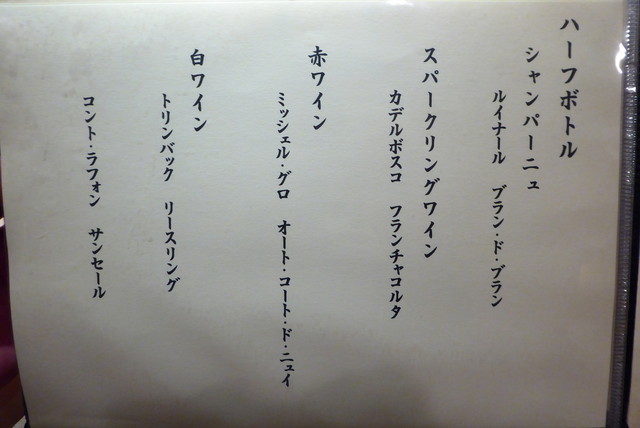 ハーフボトル
シャンパーニュ
ルイナール ブラン・ド・ブラン
スパークリングワイン
カデルボスコ フランチャコルタ
赤ワイン
ミッシェル・グロ オート・コート・ド・ニュイ
白ワイン
トリンバック リースリング
コント・ラフォン サンセール